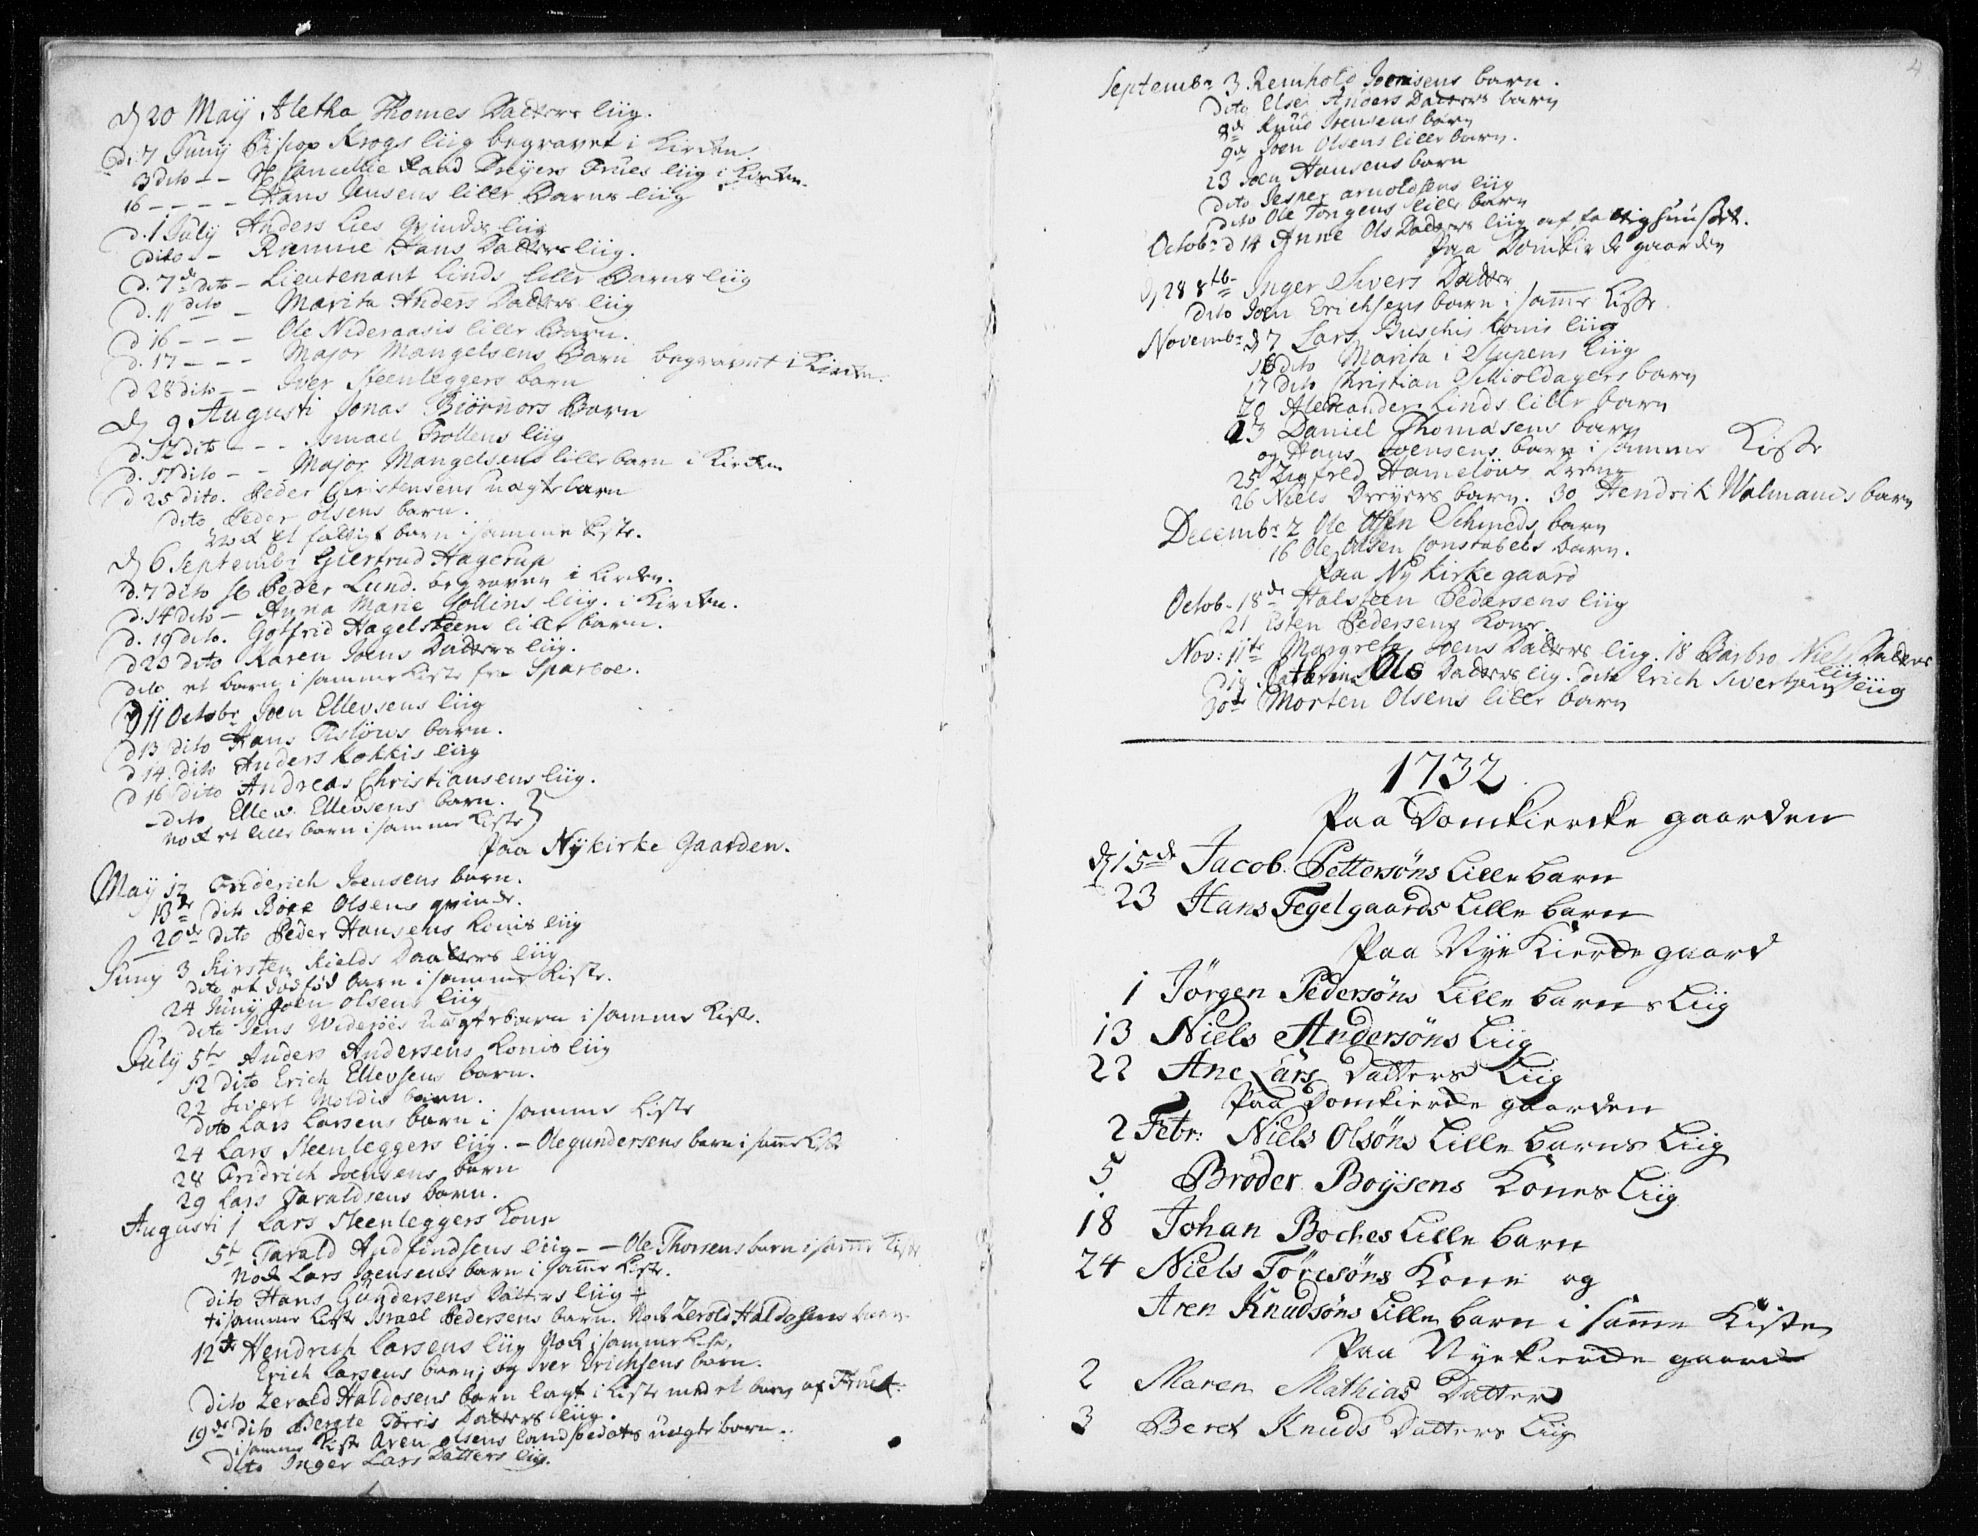 d 20 May Aletha Thomes Datters liig.
d. 7 Juny Bisiop Krogs liig begravet i Kircken.
3 dito - - Hr Cancellie Raad Dreyers Frues liig i Kircken.
16 - - - - Hans Jensens lille Barns liig
d. 1 July Anders Lies Qvindes liig
dito - Hans Datters liig.
d. 7de dito - Lieutenant Linds lille Barns liig
d. 11 dito - Marita Anders Datters liig
d 16 - - - Ole Nideraasis lille Barn.
d. 17 - - - Major Mangelsens Barn begravet i Kircken.
d 28 dito - - Iver Steenleggers barn
d 9 Augusti Jonas Biörnors Barn
d. 12 dito - - - Ismael Trollens liig
d. 17 dito - - Major Mangelsens lille barn i Kircken
d 25 dito. Peder Christensens uægte barn
dito Peder Olsens barn.
nock et fattigt barn i samme kiste.
d 6 Septembr Giertrud Hagerup
d. 7 dito Hr Peder Lund. begraven i Kircken.
d. 14 dito - Anna Marie Collins liig. i Kircken.
d. 19 dito. Gotfrid Hagelsteens lille barn.
d 23 dito Karen Joens Datters liig.
dito et barn i samme Kiste fra Sparboe.
d 11 Octobr Joen Ellevsens liig
d 13 dito Hans barn.
d 14. dito Anders Kokkis liig
d 16 dito Andreas Christiansens liig.
- dito Ellew. Ellevsens barn.
nock et lille barn i samme Kiste
Paa Nykirke Gaarden.
May 12 Friderich Joensens barn.
13de dito Böre Olsens qvinde.
20de dito Peder Hansens Konis liig
Juny 3 Kirsten Kields Daatters liig
dito et dödföd barn i samme Kiste.
24 Juny Joen Olsens liig
dito Jens Wideröes uægte barn i samme Kiste.
July 5te Anders Andersens Konis liig
12 dito Erich Ellevsens barn.
22 Sivert Moldis barn.
dito Lars Larsens barn i samme Kiste
24 Lars Steenleggers liig. - Ole gundersens barn i samme Kiste
28 Fridrich Joensens barn
29 Lars Taraldsens barn.
Augusti 1 Lars Steenleggers Kone
5t Tarald Asdfindsens liig - - Ole Thorsens barn i samme Kiste
Nock Lars Joensens barn i samme Kiste.
dito Hans Gundersens Datters liig
i samme Kiste Israel Pedersens barn. Nock Zerold Haldosens barn
12te Hendrich Larsens liig Nock i samme Kiste,
Erich Larsens barn; og Iver Erichsens barn.
dito Zerald Haldosens barn lagt i Kiste med et barn af
19de dito Bergte Törris Datters liig.
i samme Kiste Aren Olsens landsoedats uægte barn.
dito Inger Lars Datters liig.
4
Septembr 3 Reinhold Joensens barn.
dito Else Anders Datters barn
8de Knud Steensens barn
9de Joen Olsens lille barn.
23 Joen Hansens barn
dito Jesper arnoldsens liig
dito Ole Tongens lille barn
Octobr d 14 Anne Ols Datters liig af fattighuuset.
Paa Domkircke gaarden
d. 28 8tb Inger Sivers Datter
dito Joen Erichsens barn i samme Kiste
Novembr d 7 Lars Buschis Konis liig
16 dito Marita i Stupens liig
17 dito Christian Schioldagers barn
20 Alexander Linds lille barn
23 Daniel Thomasens barn
og Hans Joensens barn i samme Kiste
25 Zigfred Hamelöws Dreng
26 Niels Dreyers barn. 30 Hendrik Walmands barn
Decembr 2 Ole Olsen Schmeds barn
16 Ole Olsen Constabels barn.
Paa Ny Kirkegaard
Octob. 18de Halsteen Pedersens liig
21 Esten Pedersens Kone.
Nov: 11te Margrete Joens Datters liig. 18 Barbro Niels Datters liig
d 19 Cathrine Ols Datters liig. dito Erich Sivertsens liig
30te Morten Olsens lille barn
1732
Paa Domkiercke gaarden
d 15de Jacob Pettersöns Lille barn
23 Hans Tegelgaards Lille barn
Paa Nye Kiercke gaard
1 Jörgen Pedersöns Lille barns Liig
13 Niels Andersöns Liig
22 Ane Lars Datters Liig
Paa Domkiercke gaarden
2 Febr: Niels Olsöns Lille barns Liig
5 Broder Boysens Kones Liig
18 Johan Boches Lille barn
24 Niels Töresöns Kone og
Aren Knudsöns Lille barn i samme Kiste
Paa Nyekiercke gaard
2 Maren Mathias Datter
3 Beret Knuds Datters Liig